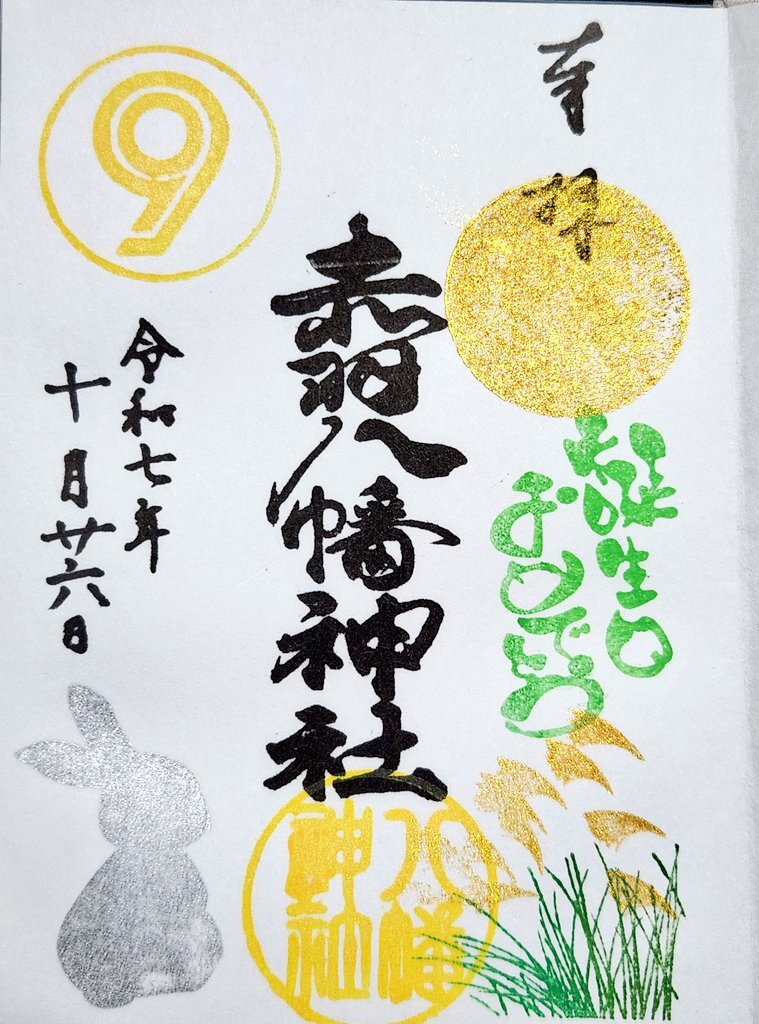 奉拝
誕生日
おめでとう
赤羽八幡神社
八幡
神社
令和七年
十月廿六日
9